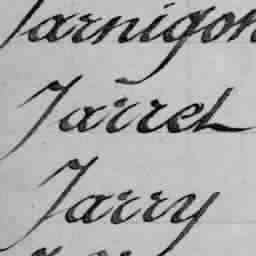 Jarnigon
Jarret
Jarry